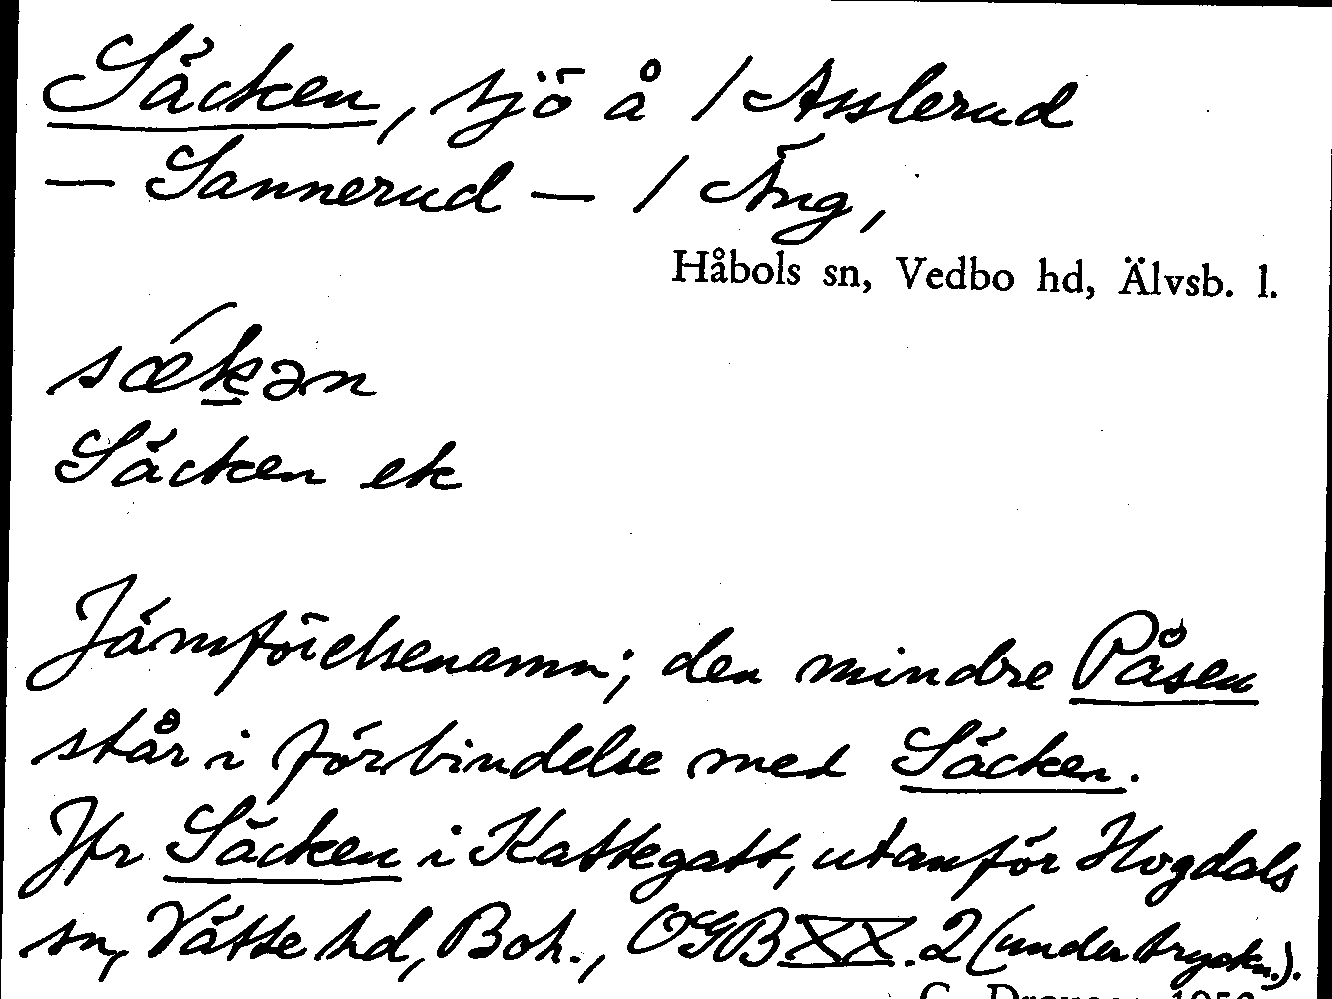 Säcken, sjö å 1 Asslerud
— Sannerud — 1 Äng,
Håbols sn, Vedbo hd, Älvsb. l.
sǽk̲ən
Säcken ek
Jämförelsenamn; den mindre Påsen
står i förbindelse med Säcken.
Jfr Säcken i Kattegatt, utanför Hogdals
sn, Vätte hd, Boh., OGB XX.2 (under tryckn.).